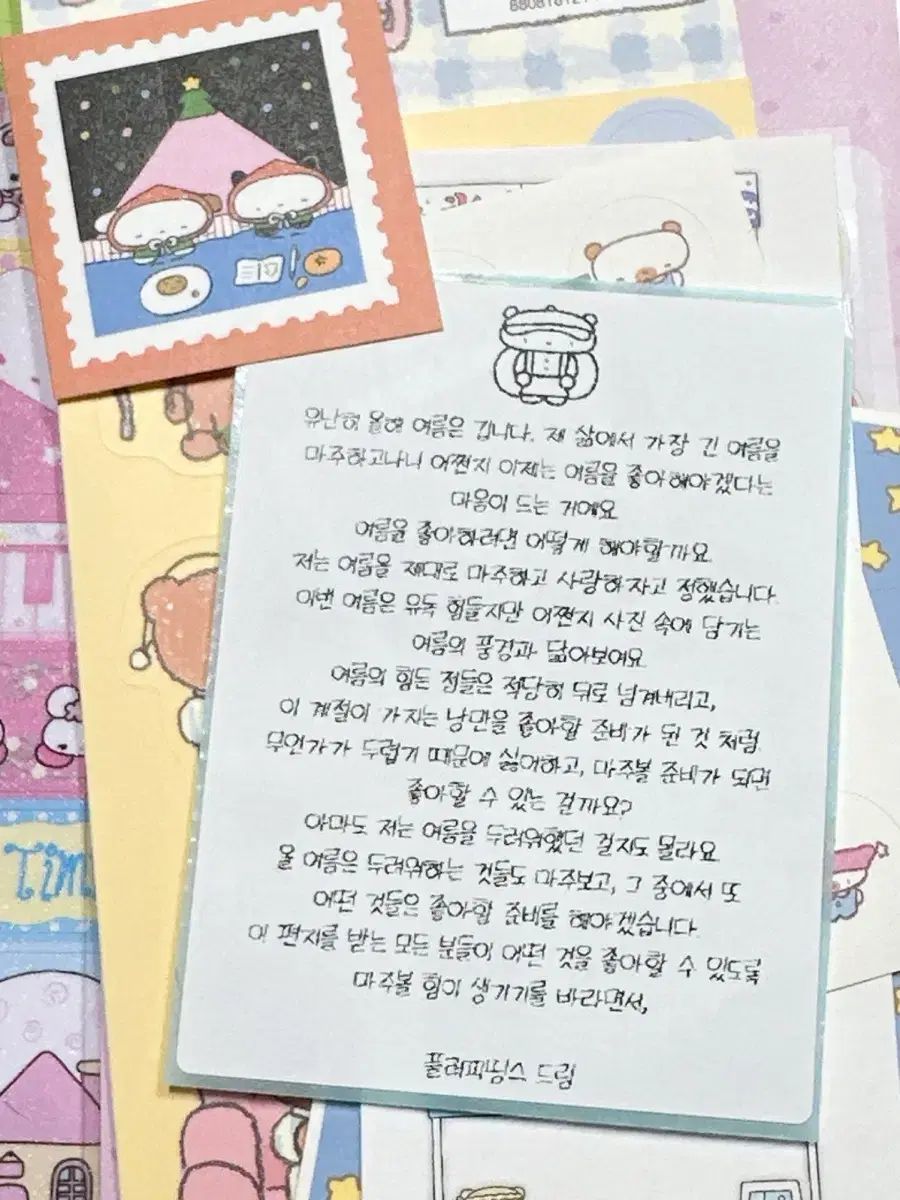 유난히 올해 여름은 깁니다. 제 삶에서 가장 긴 여름을
마주하고나니 어쩐지 이제는 여름을 좋아해야겠다는
마음이 드는 거예요
여름을 좋아하려면 어떻게 해야할까요
저는 여름을 제대로 마주하고 사랑하자고 정했습니다.
이번 여름은 유독 힘들지만 어쩐지 사진 속에 담기는
여름의 풍경과 닮아보여요
여름의 힘든 점들은 적당히 뒤로 넘겨내리고,
이 계절이 가지는 낭만을 좋아할 준비가 된 것 처럼
무언가가 두렵기 때문에 싫어하고, 마주볼 준비가 되면
좋아할 수 있는 걸까요?
아마도 저는 여름을 두려워했던 걸지도 몰라요
올 여름은 두려워하는 것들도 마주보고, 그 중에서 또
어떤 것들은 좋아할 준비를 해야겠습니다.
이 편지를 받는 모든 분들이 어떤 것을 좋아할 수 있도록
마주볼 힘이 생기기를 바라면서,
드림
Tim